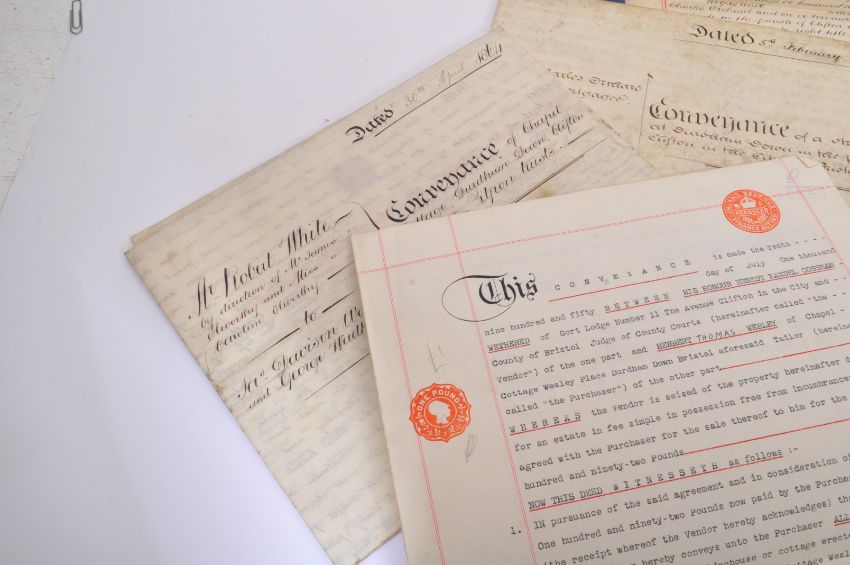 Charles Orchard and on
in the parish of Clifton
Dated 5th February
Charles Orchard
Mortgagee.
Conveyance of a
at Durdham Down in the
Clifton in the
Dated 30th April
Conveyance of Chapel
Durdham Down, Clifton
Upon trusts.
Mr. Robert White
by direction of Mr. James
and Miss
Caroline
to
Davison
and George
INLAND REVENUE
PRODUCED
FINANCE ACT
This CONVEYANCE is made the Tenth - - - -
day of July One thousand
nine hundred and fifty BETWEEN HIS HONOUR ERNEST HANDEL COSSHAM
WETHERED of Gort Lodge Number 11 The Avenue Clifton in the City and - -
County of Bristol Judge of County Courts (hereinafter called "the - -
Vendor") of the one part and HERBERT THOMAS WEBLEY of Chapel -
Cottage Wesley Place Durdham Down Bristol aforesaid Tailor (herein
called "the Purchaser") of the other part
WHEREAS the Vendor is seised of the property hereinafter
for an estate in fee simple in possession free from incumbrances
agreed with the Purchaser for the sale thereof to him for the
hundred and ninety-two Pounds
NOW THIS DEED WITNESSETH as follows :-
1. IN pursuance of the said agreement and in consideration of
One hundred and ninety-two Pounds now paid by the Purcha
(the receipt whereof the Vendor hereby acknowledges) the
hereby conveys unto the Purchaser ALL
house or cottage erect
Cottage Wesl
ONE POUND